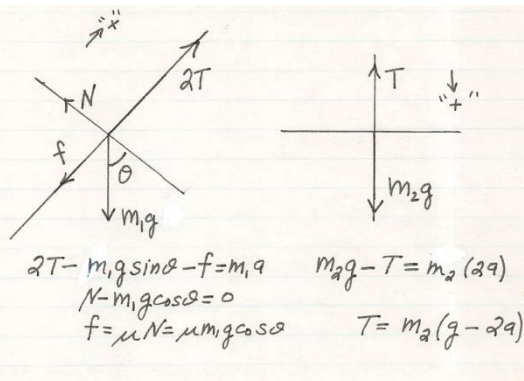 "x"
2T
N
f
θ
m₁g
T
"+"
m₂g
2T - m₁g sinθ - f = m₁a
N - m₁g cosθ = 0
f = μN = μm₁g cosθ
m₂g - T = m₂(2a)
T = m₂(g - 2a)